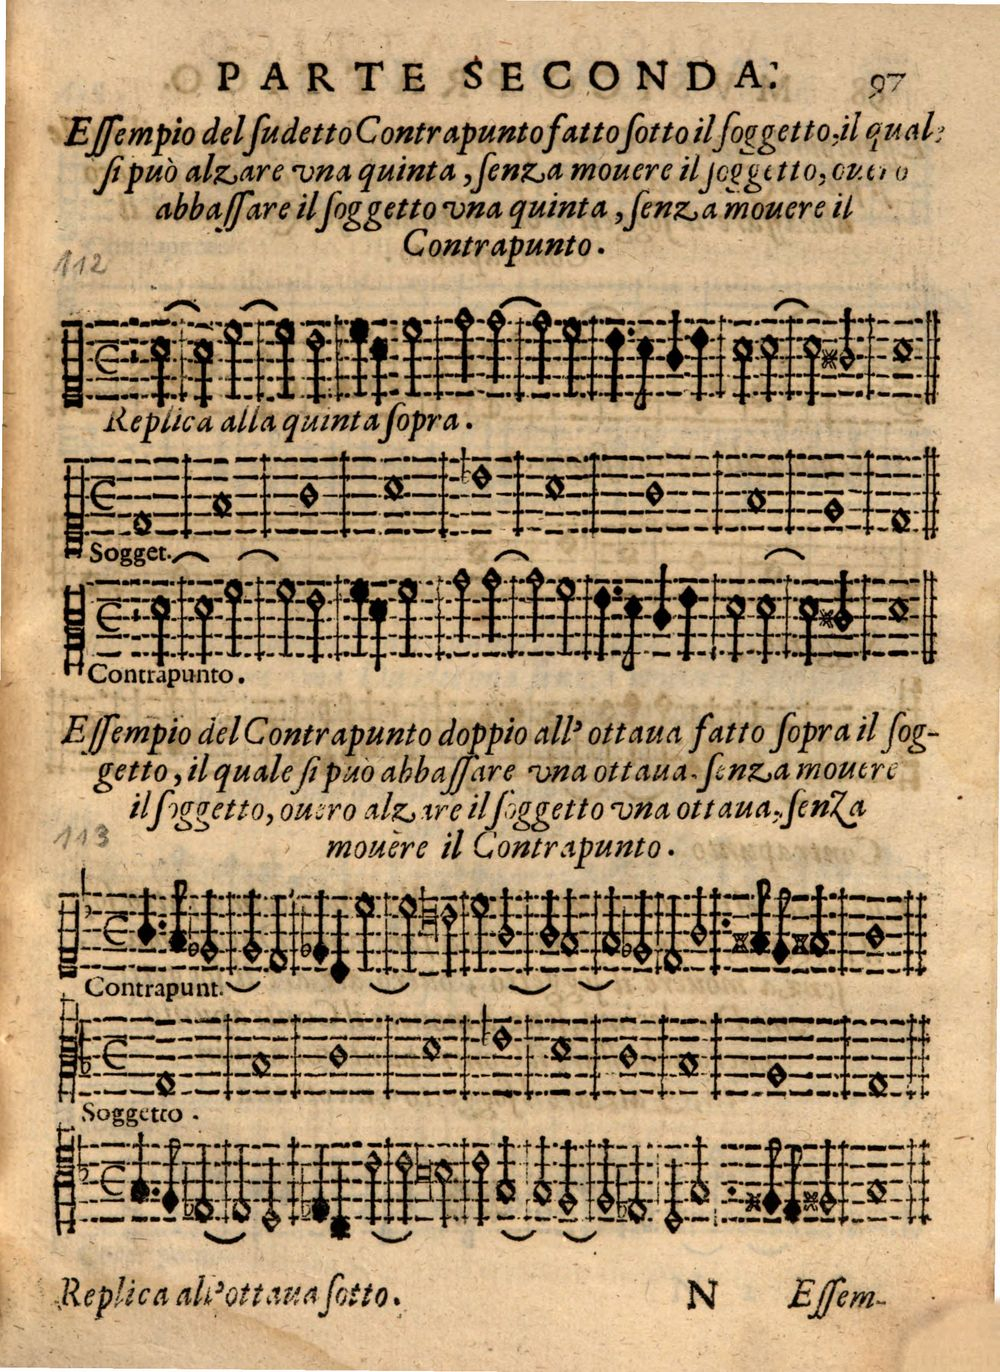 PARTE SECONDA.
97
Essempio del sudetto Contrapunto fatto sotto il soggetto, il qual
si può alzare vna quinta, senza mouere il soggetto, ouero
abbassare il soggetto vna quinta, senza mouere il
Contrapunto.
112
Replica alla quinta sopra.
Sogget.
Contrapunto.
Essempio del Contrapunto doppio all' ottaua fatto sopra il sog-
getto, il quale si può abbassare vna ottaua, senza mouere
il soggetto, ouero alzare il soggetto vna ottaua, senza
mouere il Contrapunto.
113
Contrapunt.
Soggetto.
Replica all'ottaua sotto.
N
Essem-